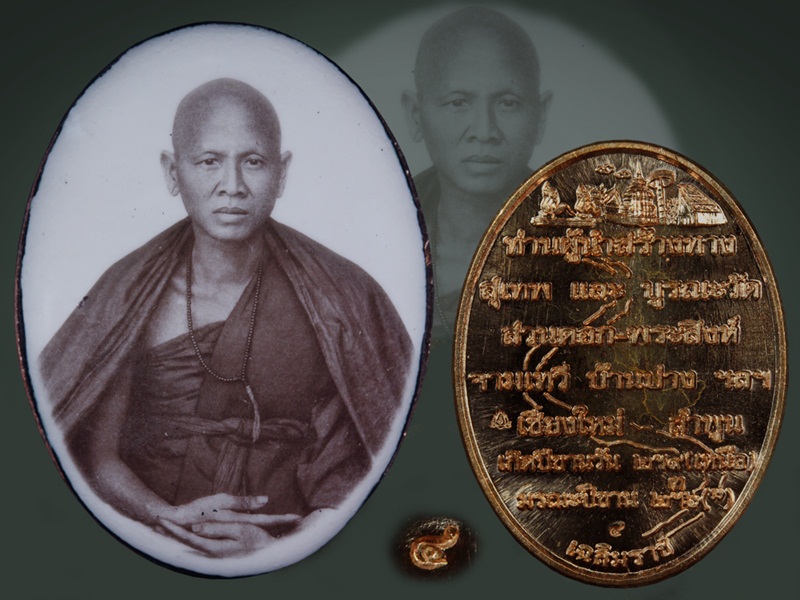 ท่านผู้นำสร้างทาง
สุเทพ และ บูรณะวัด
สวนดอก-พระสิงห์
จามเทวี บ้านปาง ฯลฯ
เชียงใหม่ – ลำพูน
เกิดปีขาลวัน
มรณะปีขาล
๔
เฉลิมราช
๔